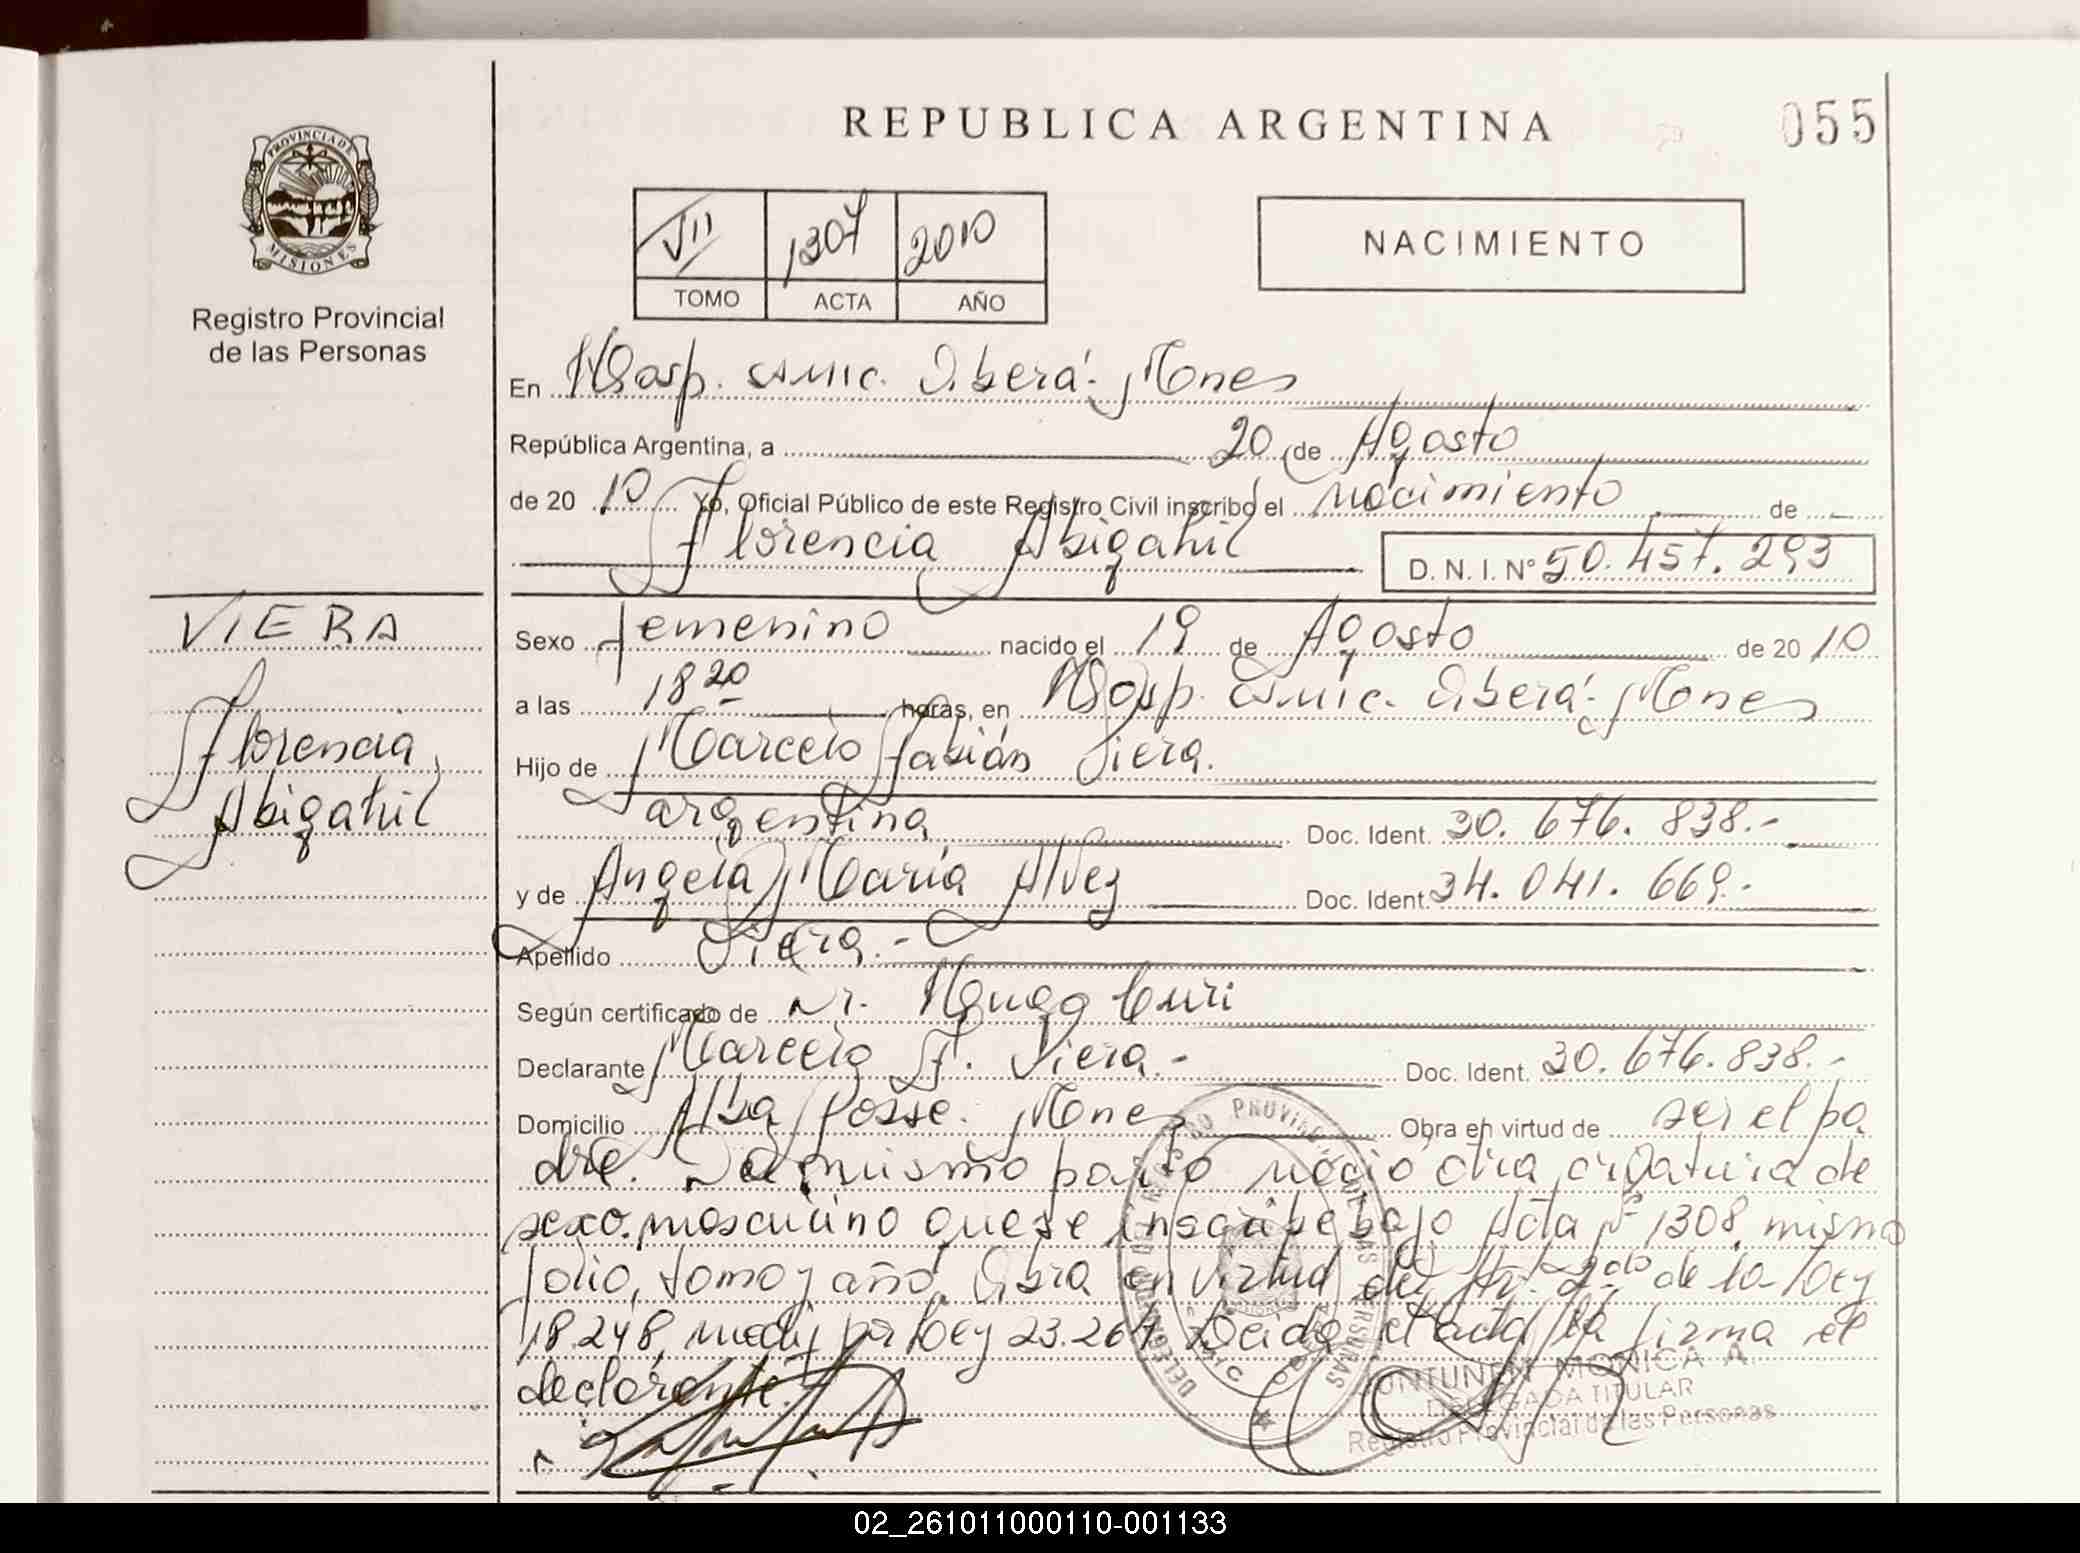 REPUBLICA ARGENTINA
055
PROVINCIA DE
MISIONES
Registro Provincial
de las Personas
VII 1307 2010
TOMO ACTA AÑO
NACIMIENTO
En Hosp. Oberá - Mnes
República Argentina, a 20 de Agosto
de 20 10 Yo, Oficial Público de este Registro Civil inscribo el nacimiento de
Florencia Abigahil
D. N. I. Nº 50.457.293
VIERA
Florencia
Abigahil
Sexo femenino nacido el 19 de Agosto de 20 10
a las 18 20 horas, en Hosp. Oberá - Mnes
Hijo de Marcelo Fabián Viera.
argentina Doc. Ident. 30.676.838.-
y de Angela María Alvez Doc. Ident. 34.041.669.-
Apellido Viera.-
Según certificado de Dr. Hugo
Declarante Marcelo F. Viera.- Doc. Ident. 30.676.838.-
Domicilio Alba Posse. Mnes Obra en virtud de ser el pa
dre. Del mismo parto nació otra criatura de
sexo masculino que se inscribe bajo Acta Nº 1308, mismo
folio, tomo y año. Obra en virtud del Art. 2do de la Ley
18.248, modif por Ley 23.264 Leída el acta la firma el
declarante.
MONICA A.
DELEGADA TITULAR
Registro Provincial de las Personas
02_261011000110-001133